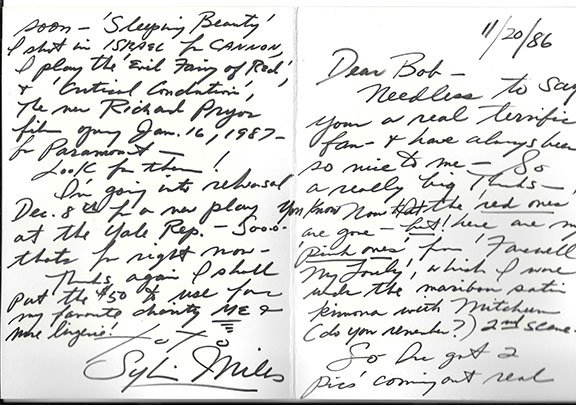 11/20/86
Dear Bob –
Needless to say
your a real terrific
fan – & have always been
so nice to me – So
a really big Thanks –
You know Now that the 'red ones'
are gone – but! here are my
'pink ones' from 'Farewell
My Lovely', which I wore
under the maribou satin
kimona with Mitchum
(do you remember?) 2nd scene.
So I've got 2
pics' coming out real
soon – 'Sleeping Beauty'
I shot in ISRAEL for CANNON,
I play the 'Evil Fairy of Red',
& 'Critical Condition',
the new Richard Pryor
film opening Jan. 16, 1987 –
for Paramount –
Look for them!
I'm going into rehearsal
Dec. 8th for a new play
at the Yale Rep. – Sooo
thats for right now
Thanks again I shall
put the $50 to use for
my favorite charity ME &
more lingerie!
Sylvia Miles